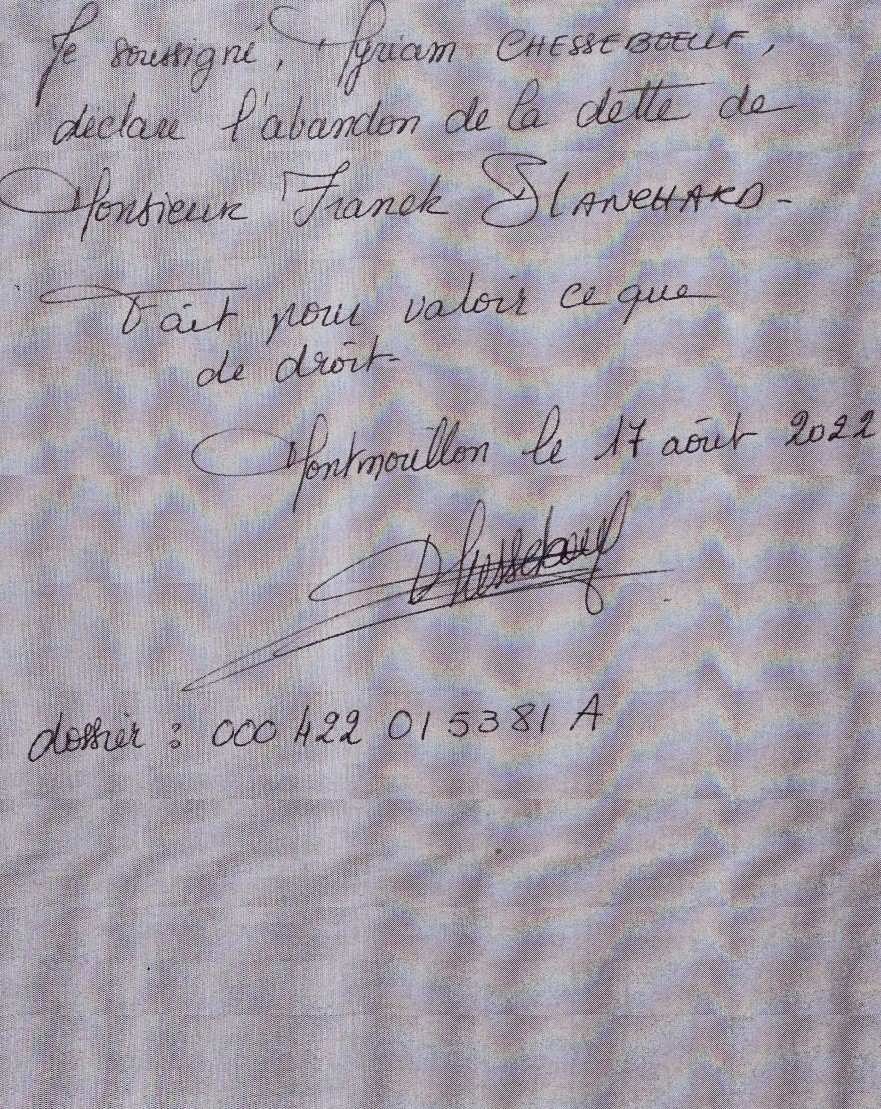 Je soussigné, Myriam CHESSEBOEUF,
déclare l'abandon de la dette de
Monsieur Franck BLANCHARD-
Fait pour valoir ce que
de droit-
Montmorillon le 17 août 2022
dossier : 000 422 015381 A